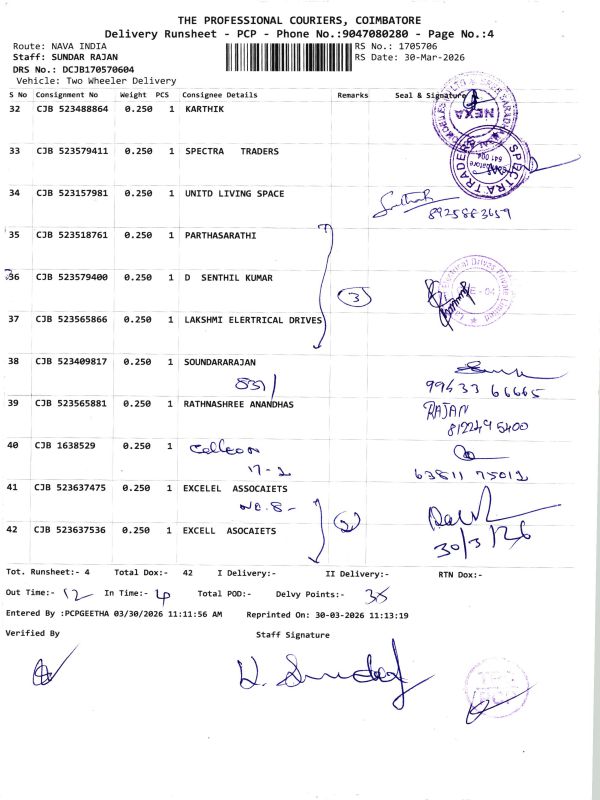 THE PROFESSIONAL COURIERS, COIMBATORE
Delivery Runsheet - PCP - Phone No.:9047080280 - Page No.:4
Route: NAVA INDIA RS No.: 1705706
Staff: SUNDAR RAJAN RS Date: 30-Mar-2026
DRS No.: DCJB170570604
Vehicle: Two Wheeler Delivery
S No Consignment No Weight PCS Consignee Details Remarks Seal & Signature
32 CJB 523488864 0.250 1 KARTHIK
NEXA
33 CJB 523579411 0.250 1 SPECTRA TRADERS
SPECTRA TRADERS
641 004
34 CJB 523157981 0.250 1 UNITD LIVING SPACE
35 CJB 523518761 0.250 1 PARTHASARATHI
36 CJB 523579400 0.250 1 D SENTHIL KUMAR
3
37 CJB 523565866 0.250 1 LAKSHMI ELERTRICAL DRIVES
38 CJB 523409817 0.250 1 SOUNDARARAJAN
99433 66665
39 CJB 523565881 0.250 1 RATHNASHREE ANANDHAS
RAJAN
812249 5400
40 CJB 1638529 0.250 1
17-2
63811 75012
41 CJB 523637475 0.250 1 EXCELEL ASSOCAIETS
NO.8-
2
42 CJB 523637536 0.250 1 EXCELL ASOCAIETS
30/3/26
Tot. Runsheet:- 4 Total Dox:- 42 I Delivery:- II Delivery:- RTN Dox:-
Out Time:- 12 In Time:- 4 Total POD:- Delvy Points:- 38
Entered By :PCPGEETHA 03/30/2026 11:11:56 AM Reprinted On: 30-03-2026 11:13:19
Verified By Staff Signature